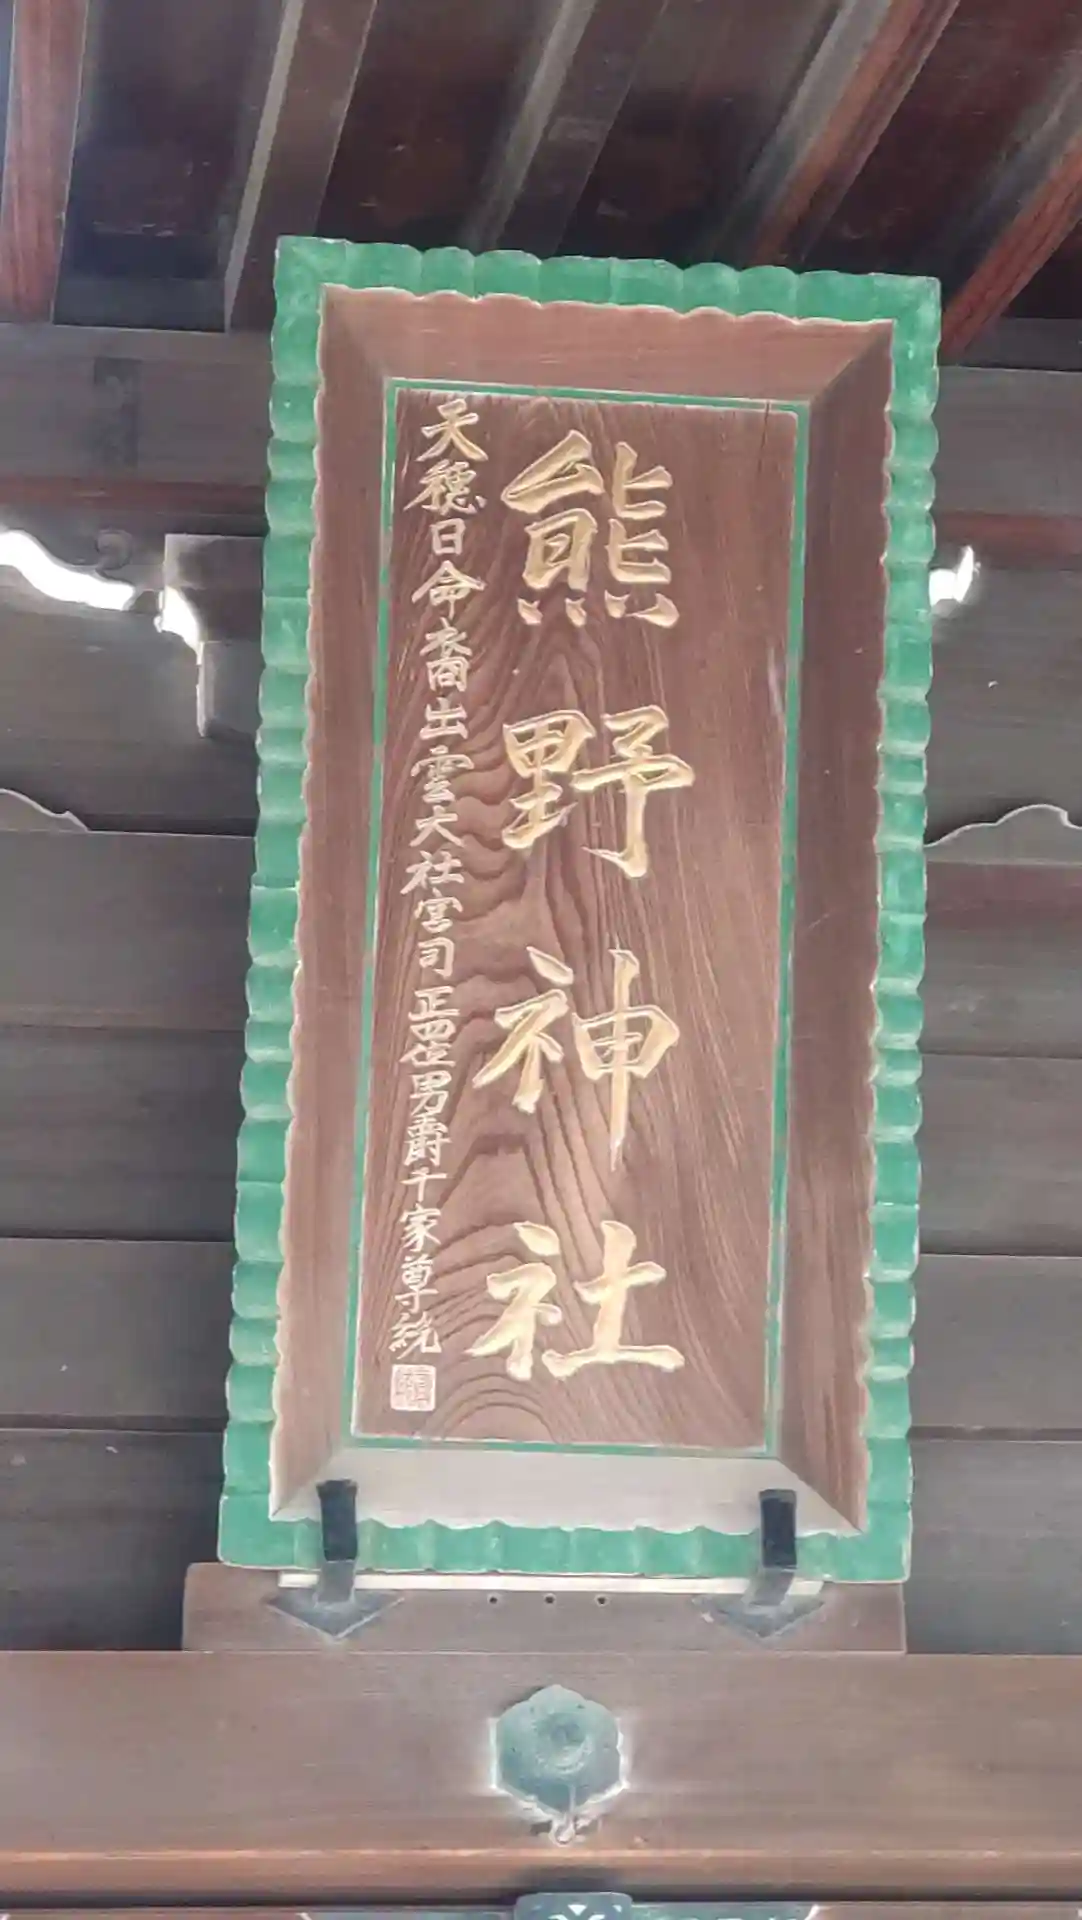 熊野神社
天穂日命裔出雲大社宮司 正四位男爵千家尊統